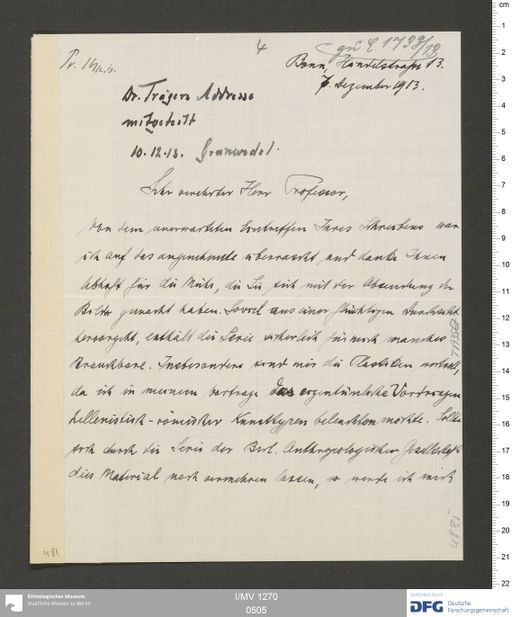 4
zu E. 1733/13
Pr. 16/12.13.
Bonn, Händelstraße 13.
7. Dezember 1913.
Dr. Trägers Addresse
mitgeteilt
10.12.13. Grünwedel.
Sehr verehrter Herr Professor,
Von dem unerwarteten Eintreffen Ihres Schreibens war
ich auf das angenehmste überrascht und danke Ihnen
lebhaft für die Mühe, die Sie sich mit der Absendung der
Bilder gemacht haben. Soviel aus einer flüchtigen Durchsicht
hervorgeht, enthält die Serie sicherlich für mich manches
Brauchbare. Insbesondere sind mir die Plastiken wertvoll,
da ich in meinem Vortrage das eigentümliche Vordringen
hellenistisch-römischer Kunsttypen beleuchten möchte. Sollte
sich durch die Serie der Berl. Anthropologischen Gesellschaft
dies Material noch vermehren lassen, so werde ich mich
481
Ethnologisches Museum
Staatliche Museen zu Berlin
I/MV 1270
0505
Gefördert durch
DFG Deutsche
Forschungsgemeinschaft
cm
1
2
3
4
5
6
7
8
9
10
11
12
13
14
15
16
17
18
19
20
21
22